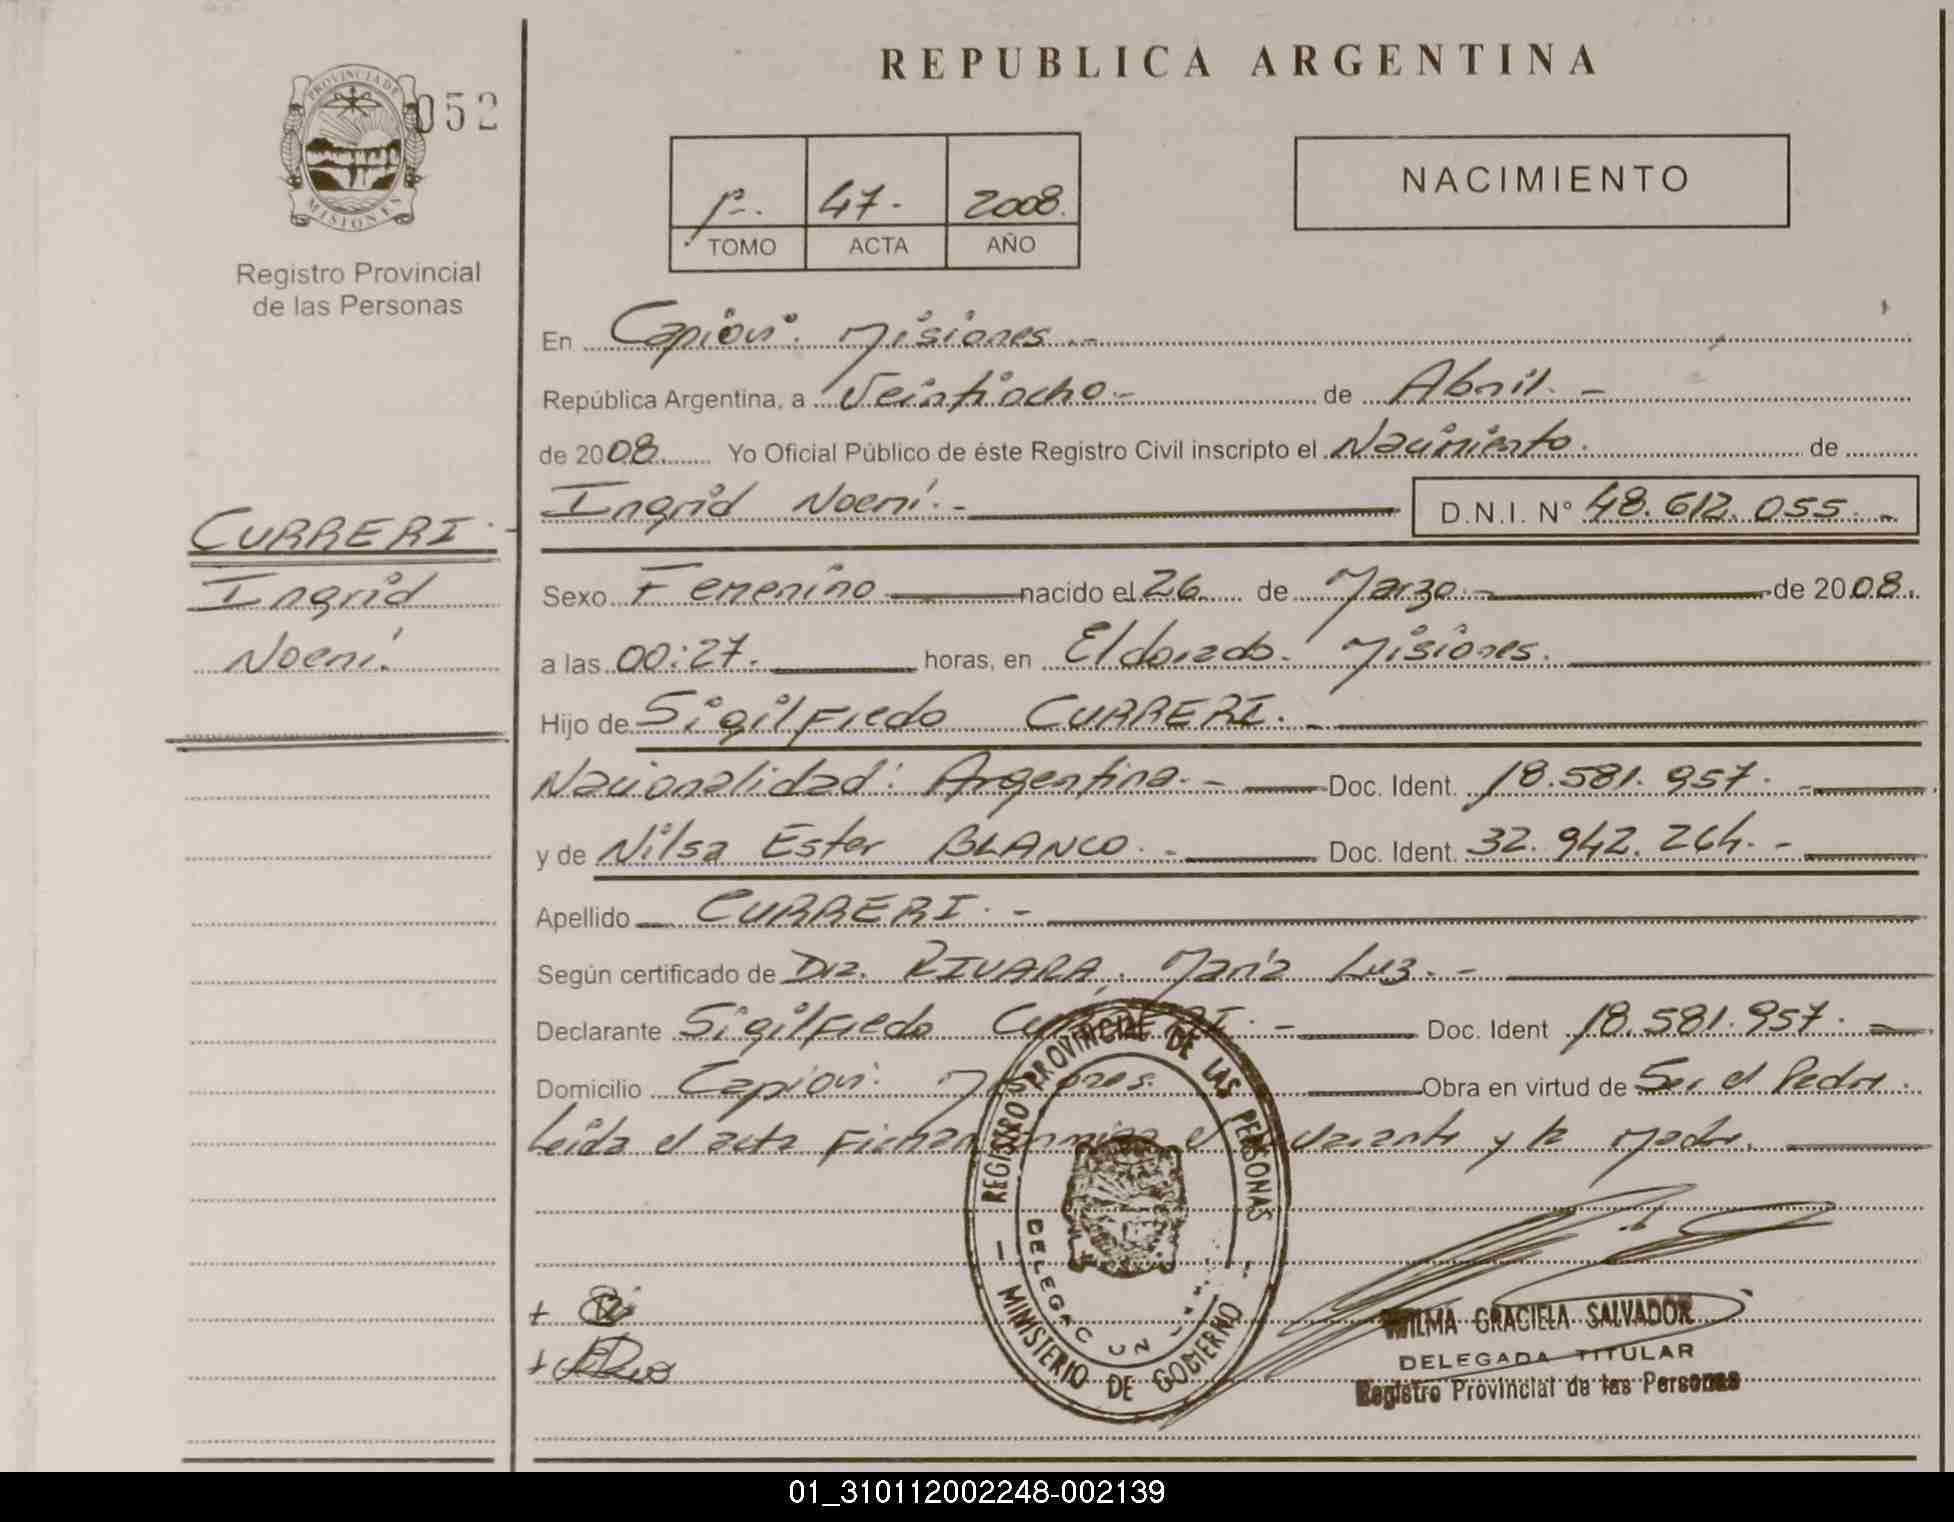 REPUBLICA ARGENTINA
PROVINCIA DE MISIONES
052
Registro Provincial
de las Personas
1º-. 47.- 2008.
TOMO ACTA AÑO
NACIMIENTO
En Capioví. Misiones.-
República Argentina, a Veintiocho- de Abril.-
de 2008. Yo Oficial Público de éste Registro Civil inscripto el Nacimiento. de
Ingrid Noemí.- D.N.I. Nº 48.612.055.-
CURRERI.-
Ingrid
Noemí.
Sexo Femenino nacido el 26 de Marzo.- de 2008.
a las 00:27. horas, en Eldorado. Misiones.
Hijo de Sigilfredo CURRERI.-
Nacionalidad: Argentina.- Doc. Ident. 18.581.957.-
y de Nilsa Ester BLANCO.- Doc. Ident. 32.942.264.-
Apellido CURRERI.-
Según certificado de Dra. RIVARA, María Luz.-
Declarante Sigilfredo CURRERI.- Doc. Ident 18.581.957.-
Domicilio Capioví. Misiones. Obra en virtud de Ser el Padre.
Leída el acta el y la Madre.
REGISTRO PROVINCIAL DE LAS PERSONAS
MINISTERIO DE GOBIERNO
WILMA GRACIELA SALVADOR
DELEGADA TITULAR
Registro Provincial de las Personas
01_310112002248-002139